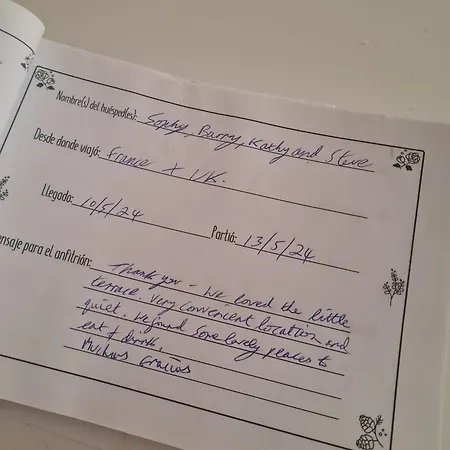 Nombre(s) del huésped(es): Sophy, Barry, Kathy and Steve
Desde donde viajó: France + UK.
Llegada: 10/5/24 Partió: 13/5/24
ensaje para el anfitrión: Thank you - We loved the little
terrace. Very convenient location and
quiet. We found some lovely places to
eat & drink.
Muchas Gracias